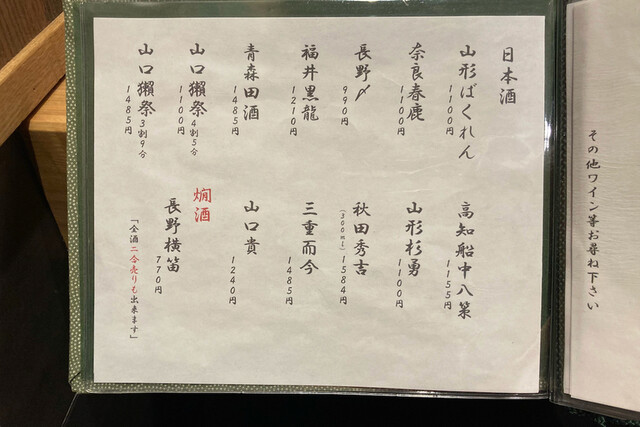 日本酒
山形ばくれん
1100円
奈良春鹿
1100円
長野〆
990円
福井黒龍
1210円
青森田酒
1485円
山口獺祭4割5分
1100円
山口獺祭3割9分
1485円
高知船中八策
1155円
山形杉勇
1100円
秋田秀吉
(300ml)1584円
三重而今
1485円
山口貴
1240円
燗酒
長野横笛
770円
「全酒二合売りも出来ます」
その他ワイン等お尋ね下さい